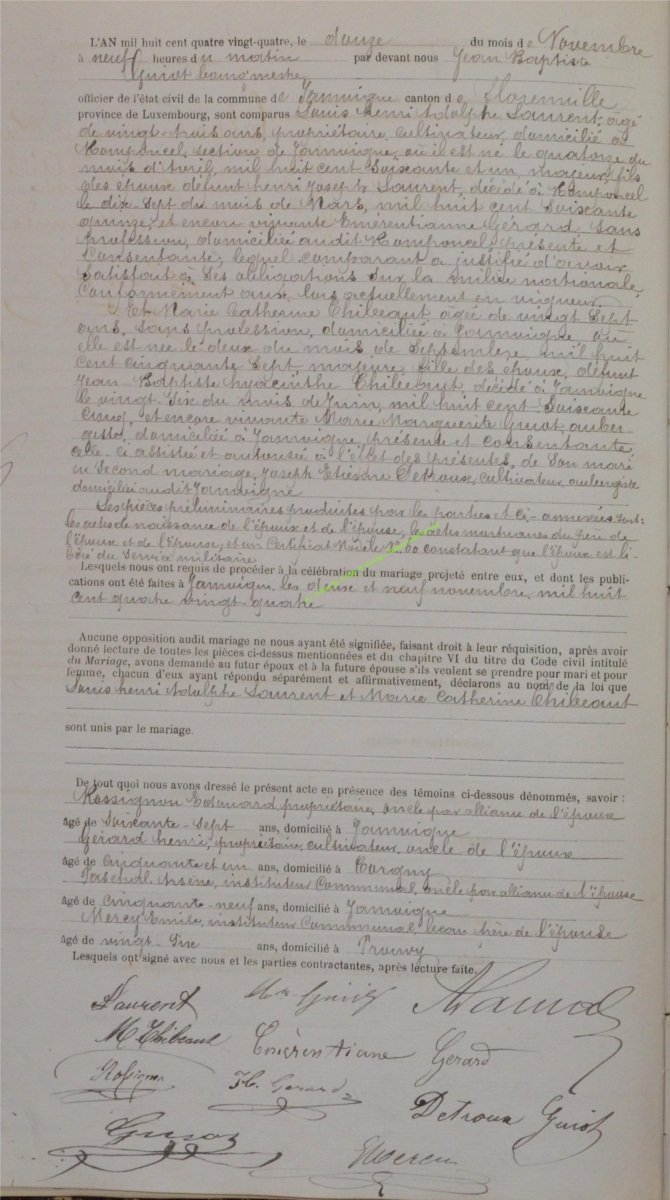 L'AN mil huit cent quatre vingt-quatre, le douze du mois de Novembre
à neuf heures du matin par devant nous Jean Baptiste
Guiot bourgmestre
officier de l'état civil de la commune de Jamoigne canton de Florenville
province de Luxembourg, sont comparus Louis henri Adolphe Laurent, âgé
de vingt-trois ans, propriétaire, cultivateur, domicilié à
Romponcel, section de Jamoigne, où il est né le quatorze du
mois d'Avril, mil huit cent Soixante et un, majeur, fils
des époux défunt henri Joseph Laurent, décédé à Romponcel
le dix-Sept du mois de Mars, mil huit cent Soixante
quinze, et encore vivante Emérentianne Gérard, Sans
profession, domiciliée audit Romponcel, présente et
consentante, lequel comparant a justifié d'avoir
satisfait à Ses obligations Sur la milice nationale
Conformément aux lois actuellement en vigueur.
Et Marie Catherine Thibeaut, âgée de vingt Sept
ans, Sans profession, domiciliée à Jamoigne où
elle est née le deux du mois de Septembre, mil huit
cent cinquante Sept, majeure, fille des époux, défunt
Jean Baptiste hyacinthe Thibeaut, décédé à Jamoigne
le vingt Six du mois de Juin, mil huit cent Soixante
Cinq, et encore vivante Marie Marguerite Guiot, auber-
giste, domiciliée à Jamoigne, présente et consentante,
celle-ci assistée et autorisée à l'effet des présentes, de Son mari
en Second mariage, Joseph Etienne Detroux, cultivateur, aubergiste
domicilié audit Jamoigne
Les pièces préliminaires produites par les parties et ci-annexées Sont:
les actes de naissance de l'époux et de l'épouse, les actes mortuaires du père de
l'époux et de l'épouse, et un Certificat Modèle constatant que l'époux est li-
béré du Service militaire.
Lesquels nous ont requis de procéder à la célébration du mariage projeté entre eux, et dont les publi-
cations ont été faites à Jamoigne, les deux et neuf novembre, mil huit
Cent quatre vingt-quatre
Aucune opposition audit mariage ne nous ayant été signifiée, faisant droit à leur réquisition, après avoir
donné lecture de toutes les pièces ci-dessus mentionnées et du chapitre VI du titre du Code civil intitulé
du Mariage, avons demandé au futur époux et à la future épouse s'ils veulent se prendre pour mari et pour
femme, chacun d'eux ayant répondu séparément et affirmativement, déclarons au nom de la loi que
Louis henri Adolphe Laurent et Marie Catherine Thibeaut
sont unis par le mariage.
De tout quoi nous avons dressé le présent acte en présence des témoins ci-dessous dénommés, savoir :
Rossignon Edouard, propriétaire, oncle par alliance de l'époux
âgé de Soixante-Sept ans, domicilié à Jamoigne
Gérard henri, propriétaire, cultivateur, oncle de l'époux
âgé de Cinquante et un ans, domicilié à
Paschal Arsène, instituteur Communal, oncle par alliance de l'épouse
âgé de Cinquante-neuf ans, domicilié à Jamoigne
Mercy Emile, instituteur Communal, beau frère de l'épouse
âgé de vingt-Six ans, domicilié à Prouvy
Lesquels ont signé avec nous et les parties contractantes, après lecture faite.
Laurent
M Thibeaut Emérentiane Gerard
Rossignon H. Gerard
Detroux Guiot